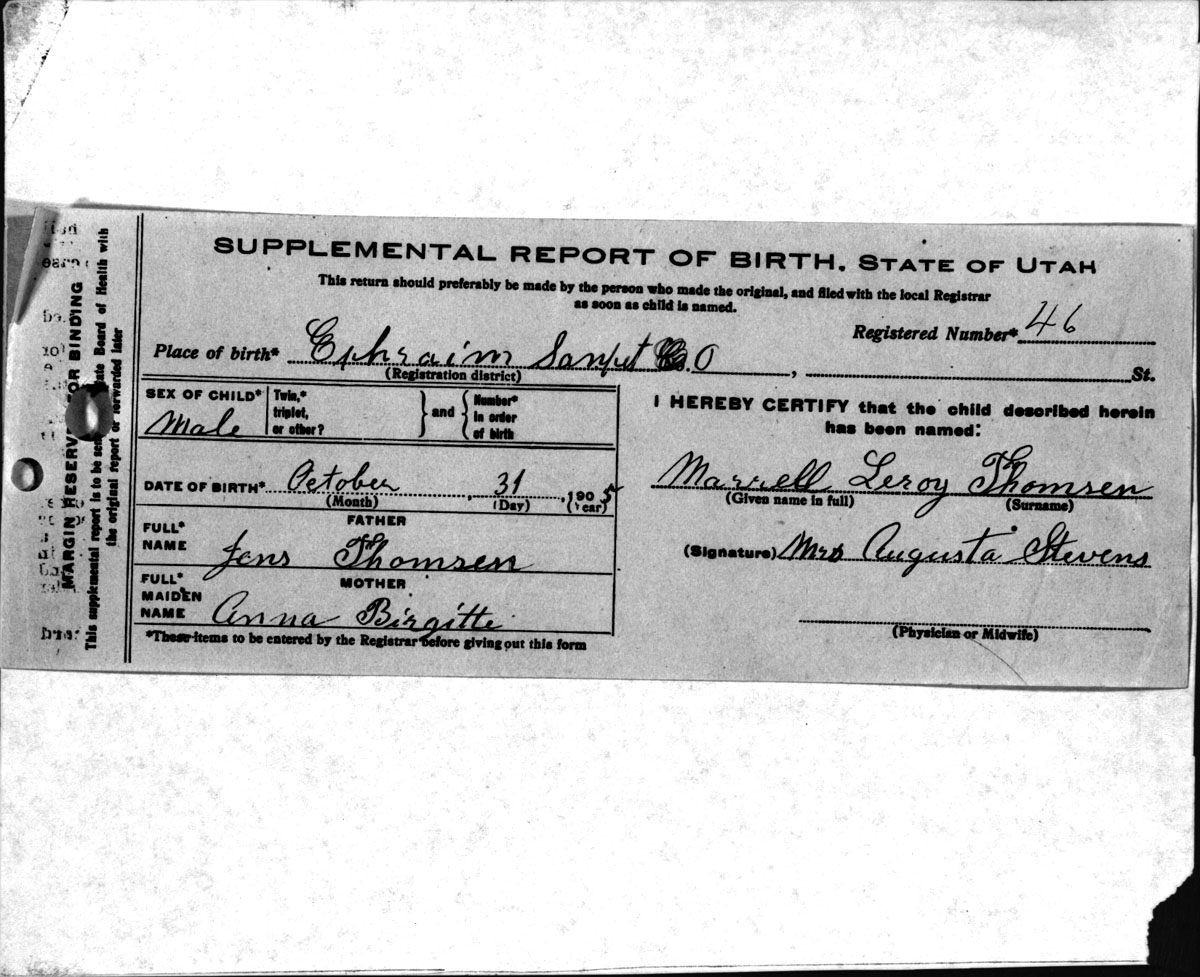 SUPPLEMENTAL REPORT OF BIRTH. STATE OF UTAH
This return should preferably be made by the person who made the original, and filed with the local Registrar
as soon as child is named.
Registered Number* 46
Place of birth* Ephraim Sanpet Co. , St.
(Registration district)
SEX OF CHILD* Male
Twin,* triplet, or other? } and { Number* in order of birth
DATE OF BIRTH* October , 31 , 1905
(Month) (Day) (Year)
FATHER
FULL* NAME Jens Thomsen
MOTHER
FULL* MAIDEN NAME Anna Birgitte
*These items to be entered by the Registrar before giving out this form
I HEREBY CERTIFY that the child described herein
has been named:
Marrell Leroy Thomsen
(Given name in full) (Surname)
(Signature) Mrs Augusta Stevens
(Physician or Midwife)
MARGIN RESERV OR BINDING
This supplemental report is to be sen ate Board of Health with
the original report or forwarded later